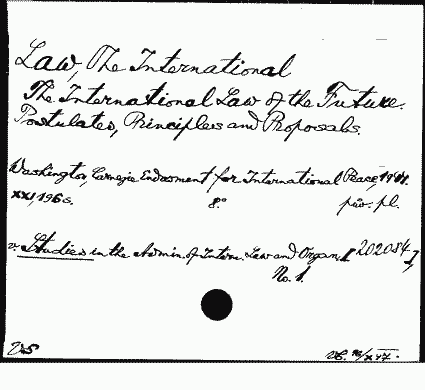 Law, The International
The International Law of the Future.
Postulates, Principles and Proposals.
Washington, Carnegie Endowment for International Peace, 1944.
xxi, 196 s. 8° piw. pl.
v. Studies in the Admin. of Intern. Law and Organ. [202084],
No. 1.